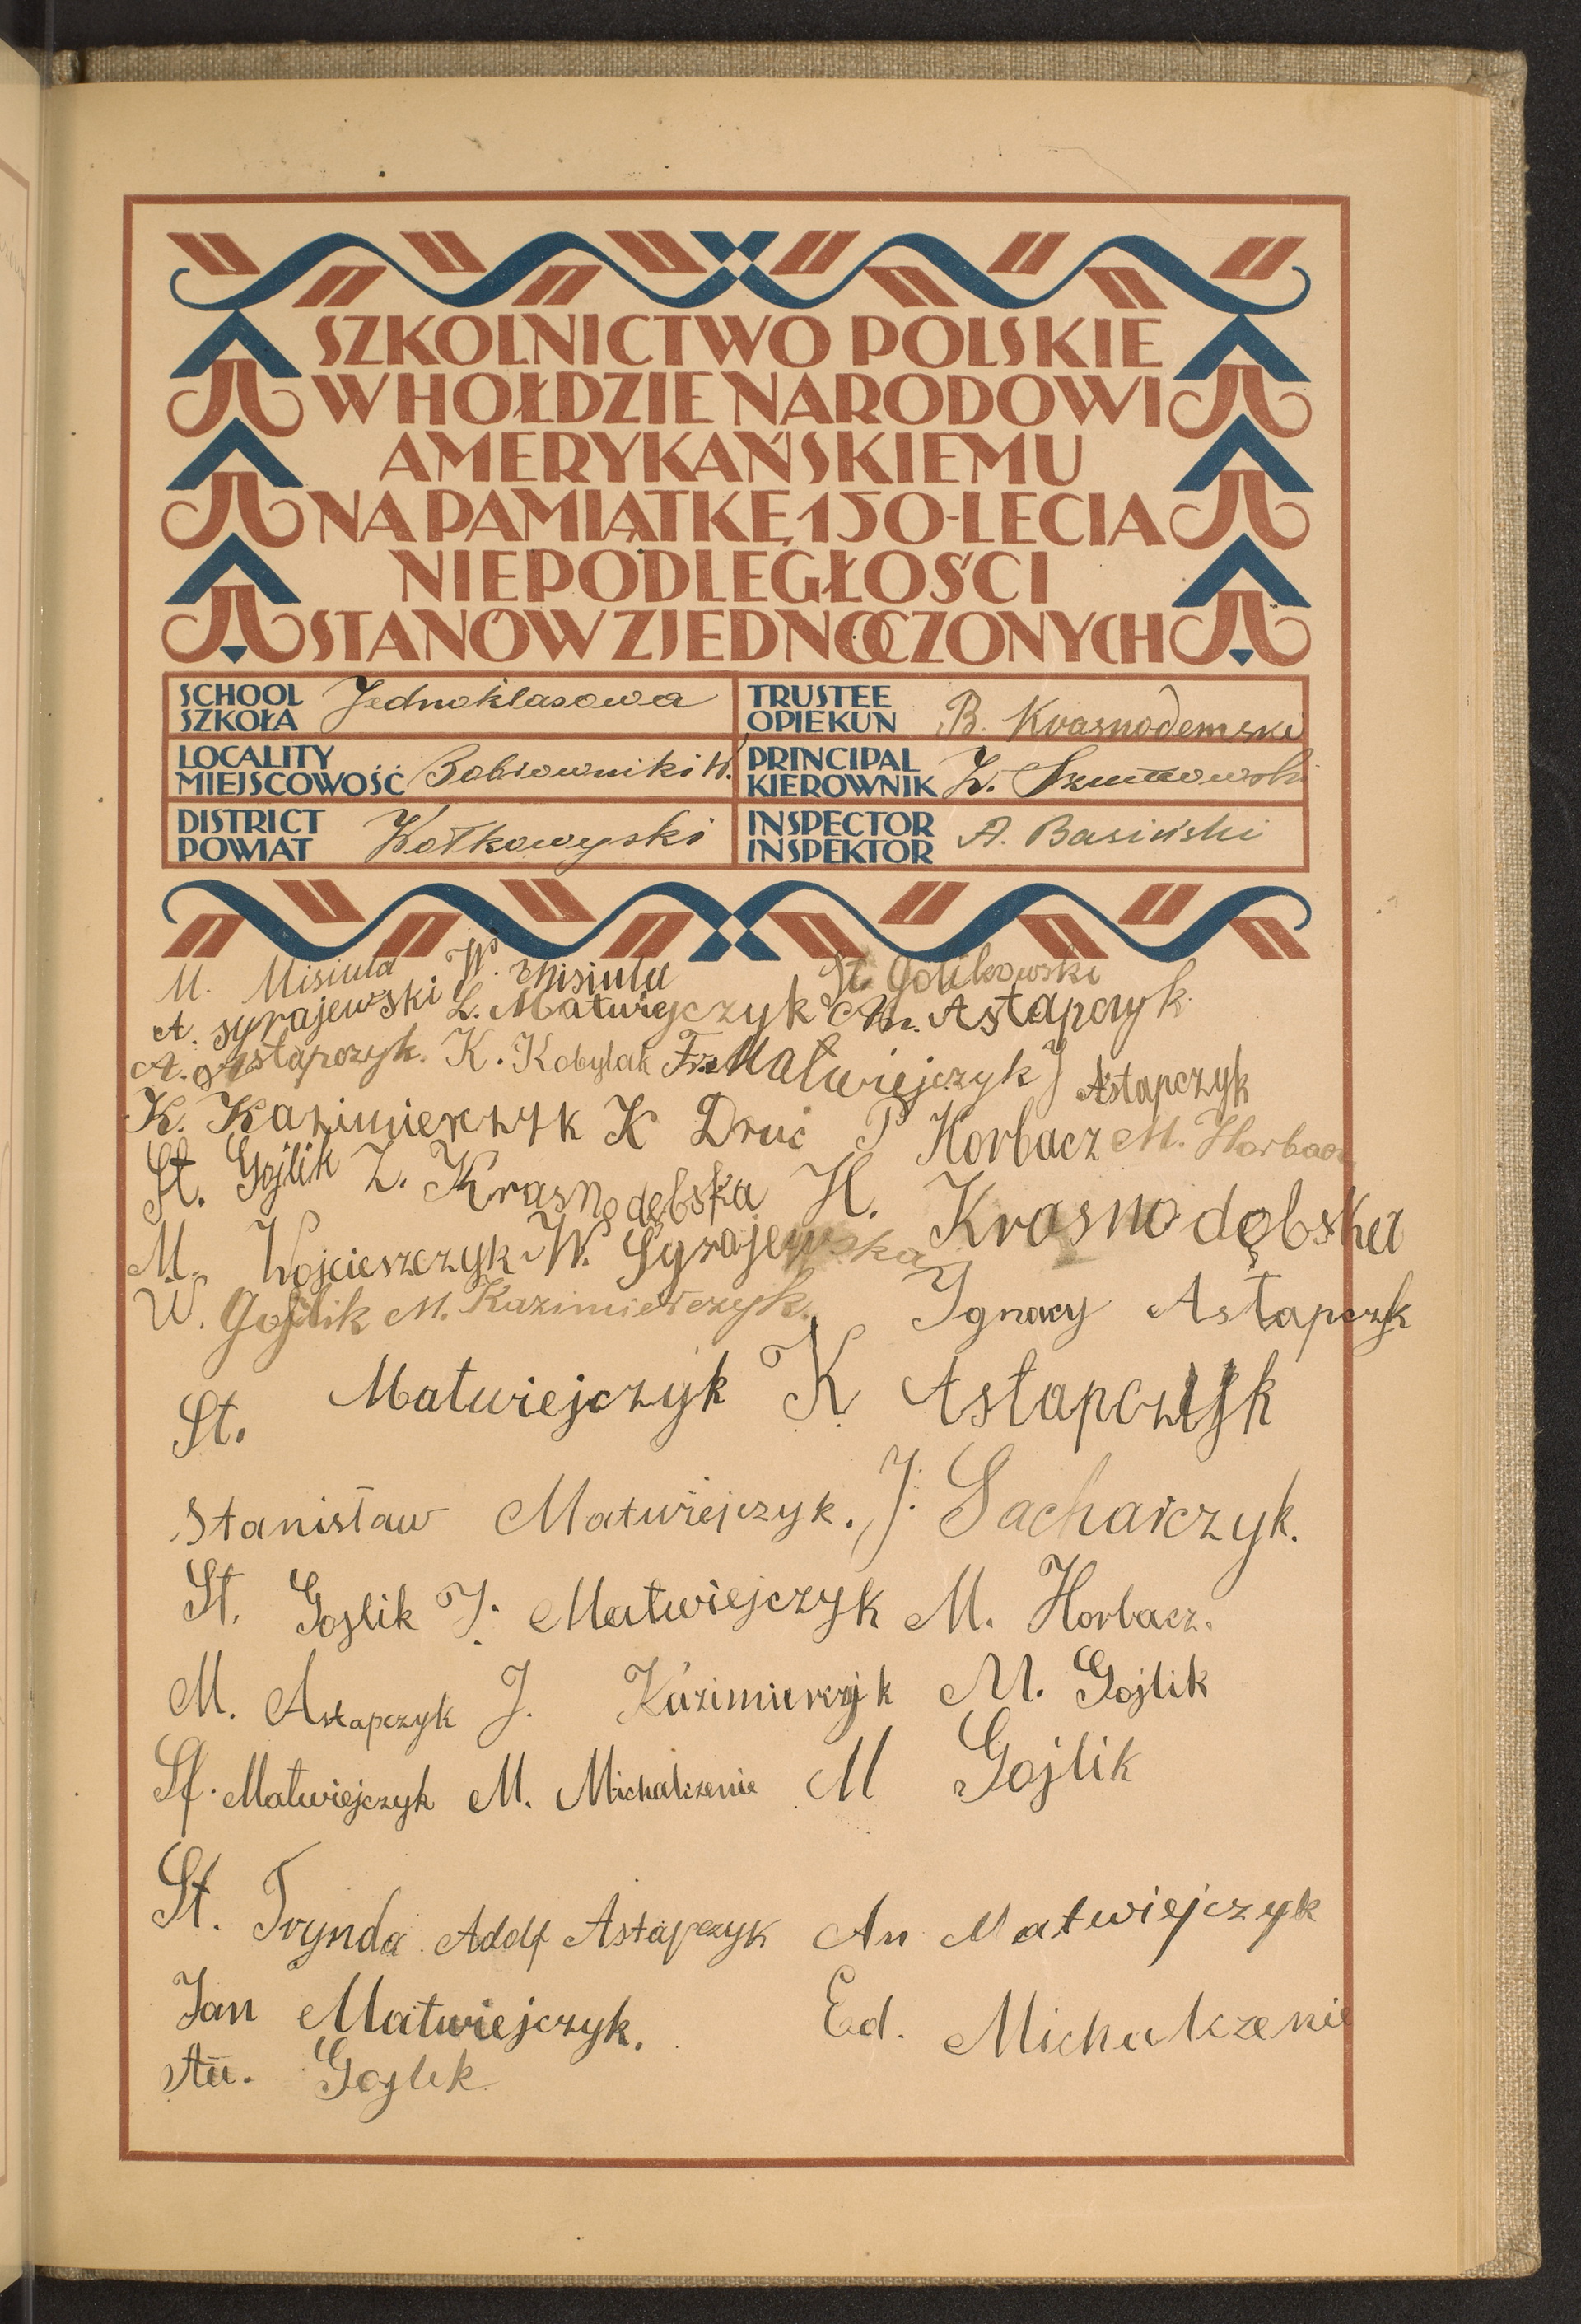 SZKOLNICTWO POLSKIE
W HOŁDZIE NARODOWI
AMERYKAŃSKIEMU
NA PAMIĄTKĘ 150-LECIA
NIEPODLEGŁOŚCI
STANÓW ZJEDNOCZONYCH
SCHOOL SZKOŁA Jednoklasowa
TRUSTEE OPIEKUN B. Krasnodemski
LOCALITY MIEJSCOWOŚĆ Bobrowniki W.
PRINCIPAL KIEROWNIK
DISTRICT POWIAT Wołkowyski
INSPECTOR INSPEKTOR A. Basiński
M. Misiuta W. Misiuta St. Golikowski
A. Syrajewski L. Matwiejczyk An. Astapczyk
A. Astapczyk. K. Kobylak Fr. Matwiejczyk J Astapczyk
K. Kazimierczyk K Druć P Horbacz M. Horbacz
St. Gojlik Z. Krasnodębska H. Krasnodębska
M. Wojcieszczyk W. Syrajewska
W. Gojlik M. Kazimierczyk. Ignacy Astapczyk
St. Matwiejczyk K Astapczyk
Stanisław Matwiejczyk. J. Sacharczyk.
St. Gojlik J. Matwiejczyk M. Horbacz.
M. Astapczyk J. Kazimierczyk M. Gojlik
Sf. Matwiejczyk M. Michalczenie M Gojlik
St. Trynda Adolf Astapczyk An Matwiejczyk
Jan Matwiejczyk. Ed. Michalczenie
An. Gojlik